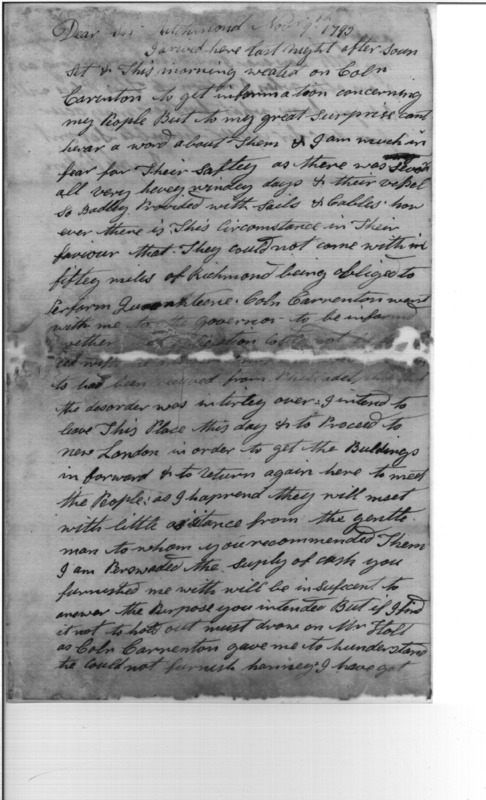 Dear Sir Richmond Novr 9th 1793
I arived here last night after Soun
Set & This morning weated on Coln
Carenton to get informatoon concerning
my People But to my great surprise cant
hear a word about Them & I am much in
fear for Their Saftey as there was
all very hevey windey days & their vessel
So Badley Provided with Sails & Cables: how
ever there is This Circumstance in Their
faviour that They could not come with in
fiftey miles of Richmond being obliged to
Perform Quarenteene: Coln Carrenton went
with me to the governor to be informd
wether not
to had been received from
the desorder was intirley over: I intend to
leave This Place this day & to Proceed to
new London in order to get the Buldings
in forward & to return again here to meet
the People: as I haprend they will meet
with little asistance from the gentle
man to whom you recommended Them
I am Perswaded the suply of cash you
furnished me with will be in sufecent to
answer the Purpose you intended But if I find
it not to hold out must draw on Mr Holl
as Coln Carrenton gave me to hunderstand
he could not furnish hanney: I have got